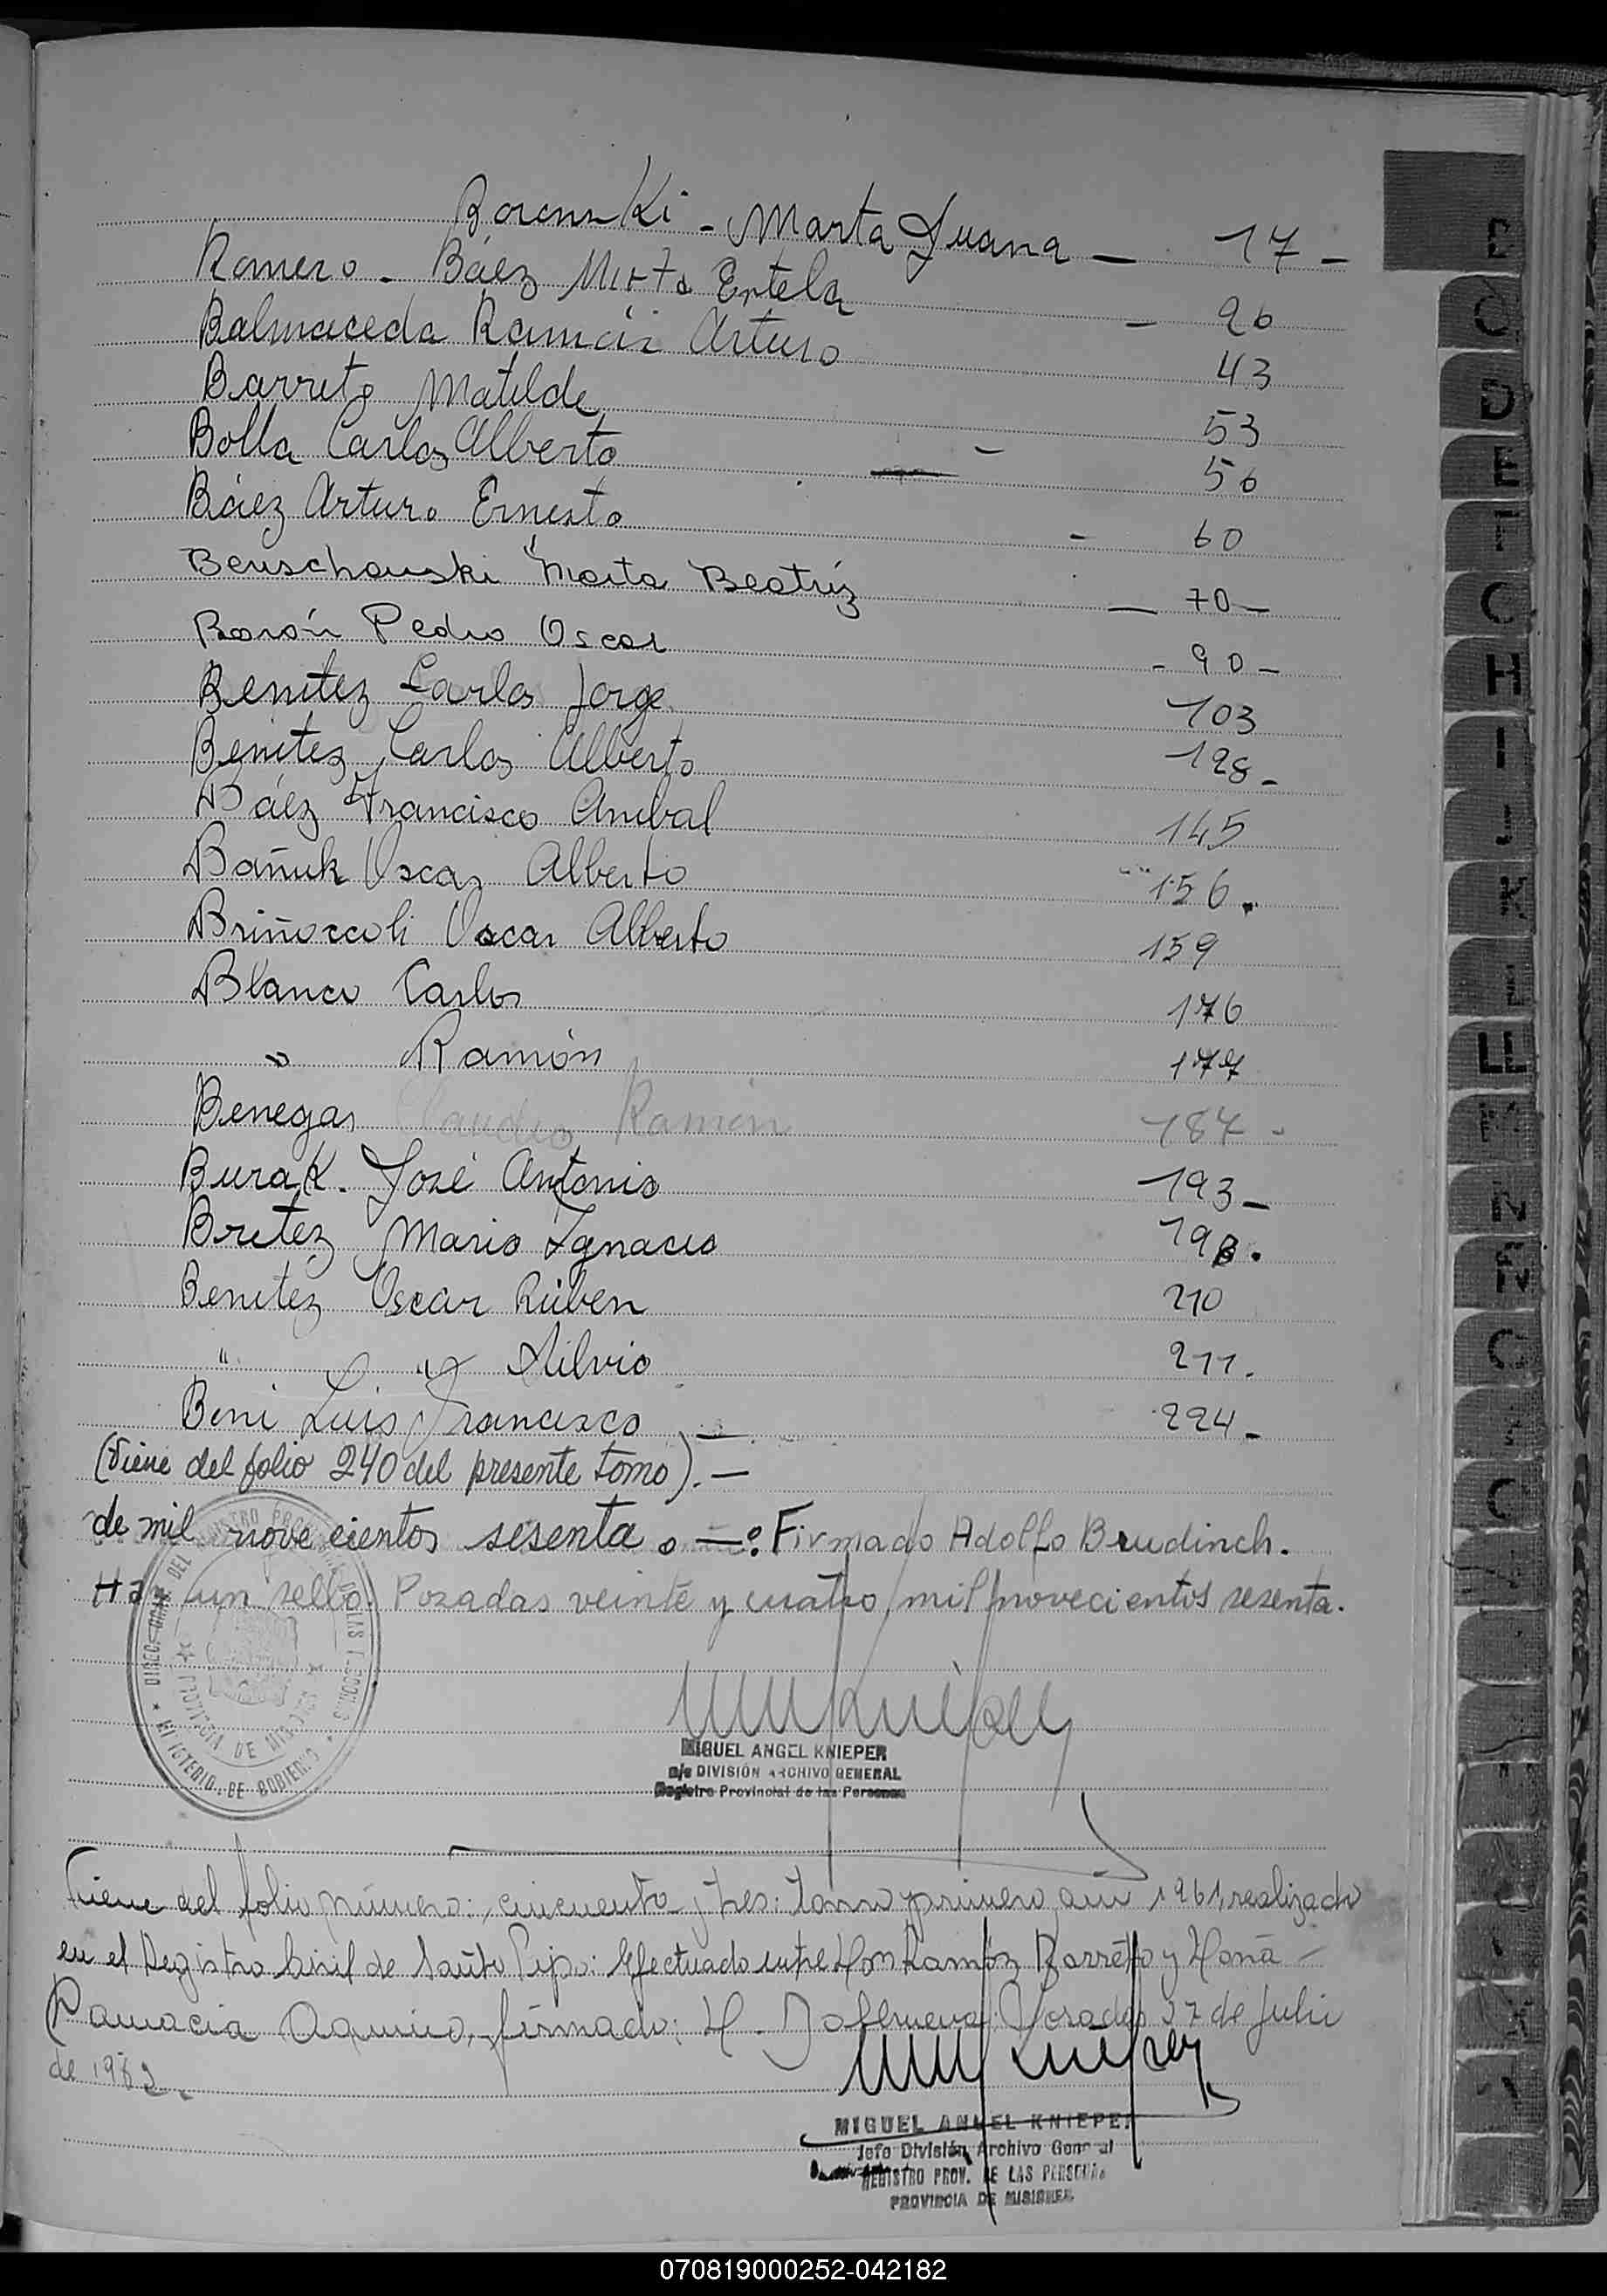 Borenski - Marta Juana — 17 -
Romero - Báez Mirta Estela — 26
Balmaceda Ramón Arturo 43
Barreto Matilde 53
Bolla Carlos Alberto - 56
Báez Arturo Ernesto - 60
Beuschouski Marta Beatríz — 70 —
Barón Pedro Oscar - 90 -
Benitez Carlos Jorge 103
Benitez Carlos Alberto 128 -
Báez Francisco Anibal 145
Bañuk Oscar Alberto 156.
Briñoccoli Oscar Alberto 159
Blanco Carlos 176
" Ramón 177
Benegas Claudio Ramón 187 -
Burak. José Antonio 193 -
Britez Mario Ignacio 198.
Benitez Oscar Rúben 210
" " Silvio 211.
Boni Luis Francisco — 224 -
(Viene del folio 240 del presente tomo). —
de mil nove cientos sesenta. —: Firmado Adolfo Brudinch.
Hay un sello. Posadas veinte y cuatro mil novecientos sesenta.
DIREC. GRAL. DEL REGISTRO PROV. DE LAS PERSONAS
PROVINCIA DE MISIONES
MINISTERIO DE GOBIERNO
MIGUEL ANGEL KNIEPER
a/c DIVISIÓN ARCHIVO GENERAL
Registro Provincial de las Personas
Viene del folio número: cincuenta y tres: tomo primero año 1961, realizado
en el Registro Civil de Santo Pipo: Efectuado entre Don Ramón Barreto y Doña -
Damacia Aquino, firmado: H. Posadas 27 de Julio
de 1962.
MIGUEL ANGEL KNIEPER
Jefe División Archivo General
REGISTRO PROV. DE LAS PERSONAS
PROVINCIA DE MISIONES
B
C
D
E
F
G
H
I
J
K
L
LL
M
N
Ñ
O
070819000252-042182